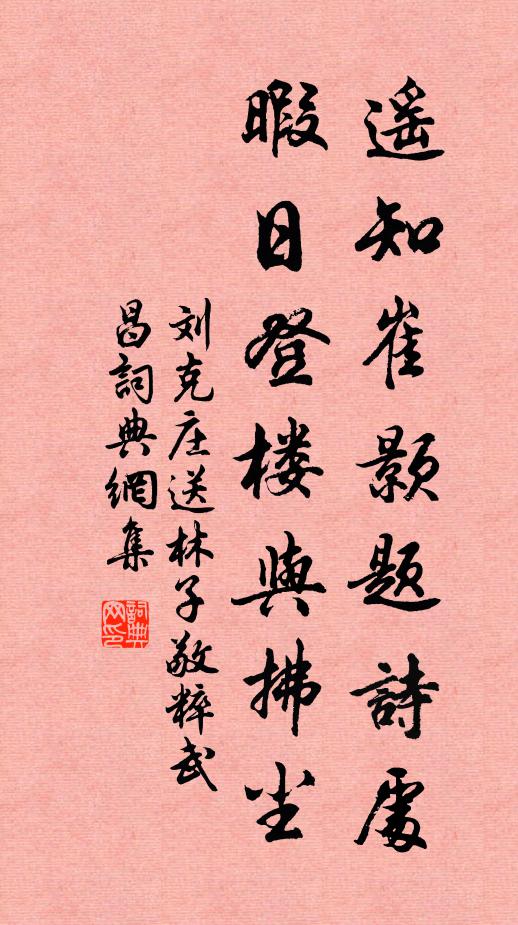 遥知崔颢题詩處
暇日登楼與拂尘
刘克庄送林子敬粹武
昌詞典網集
詞典网印